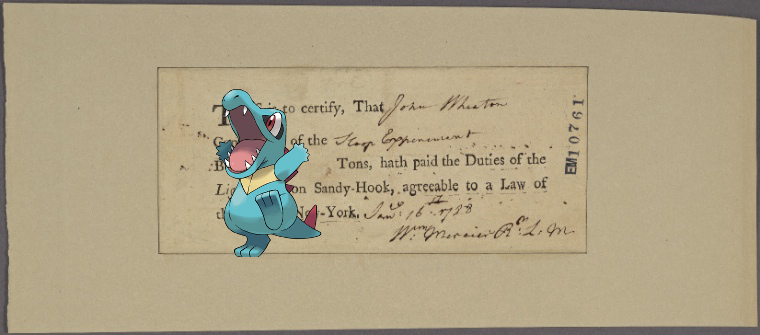 T to certify, That John Wheaton
of the Sloop Experiment
B Tons, hath paid the Duties of the
Lig on Sandy-Hook, agreeable to a Law of
th -York. Jany. 16th. 1788
Wm. Mercier Rr. L. M.
EM10761